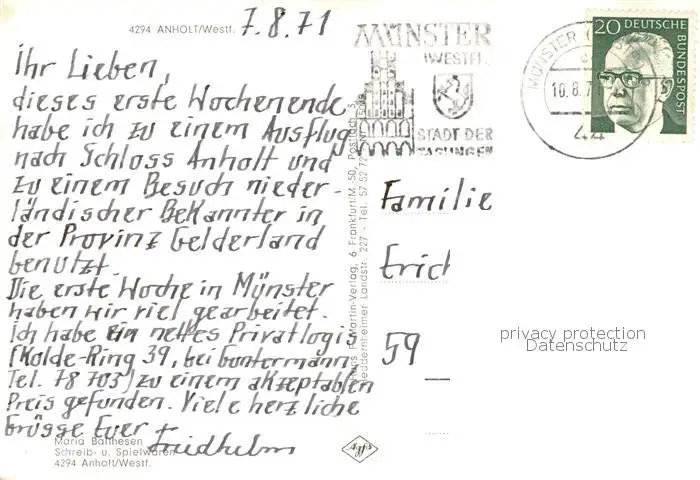 4294 ANHOLT/Westf.
7.8.71
Ihr Lieben,
dieses erste Wochenende
habe ich zu einem Ausflug
nach Schloss Anholt und
zu einem Besuch nieder-
ländischer Bekannter in
der Provinz Gelderland
benutzt.
Die erste Woche in Münster
haben wir viel gearbeitet.
Ich habe ein nettes Privatlogis
(Kolde-Ring 39, bei Guntermann,
Tel. 78 703) zu einem akzeptablen
Preis gefunden. Viele herzliche
Grüsse Euer
Friedhelm
Maria Balthesen
Schreib- u. Spielwaren
4294 Anholt/Westf.
Agfa
Martin-Verlag, 6 Frankfurt/M. 50, Postfach
Heddernheimer Landstr. 227 - Tel. 57 52 72
MÜNSTER
(WESTF.)
STADT DER
TAGUNGEN
MÜNSTER
10.8.71
44
20 DEUTSCHE
BUNDESPOST
Familie
Erich
59
privacy protection
Datenschutz